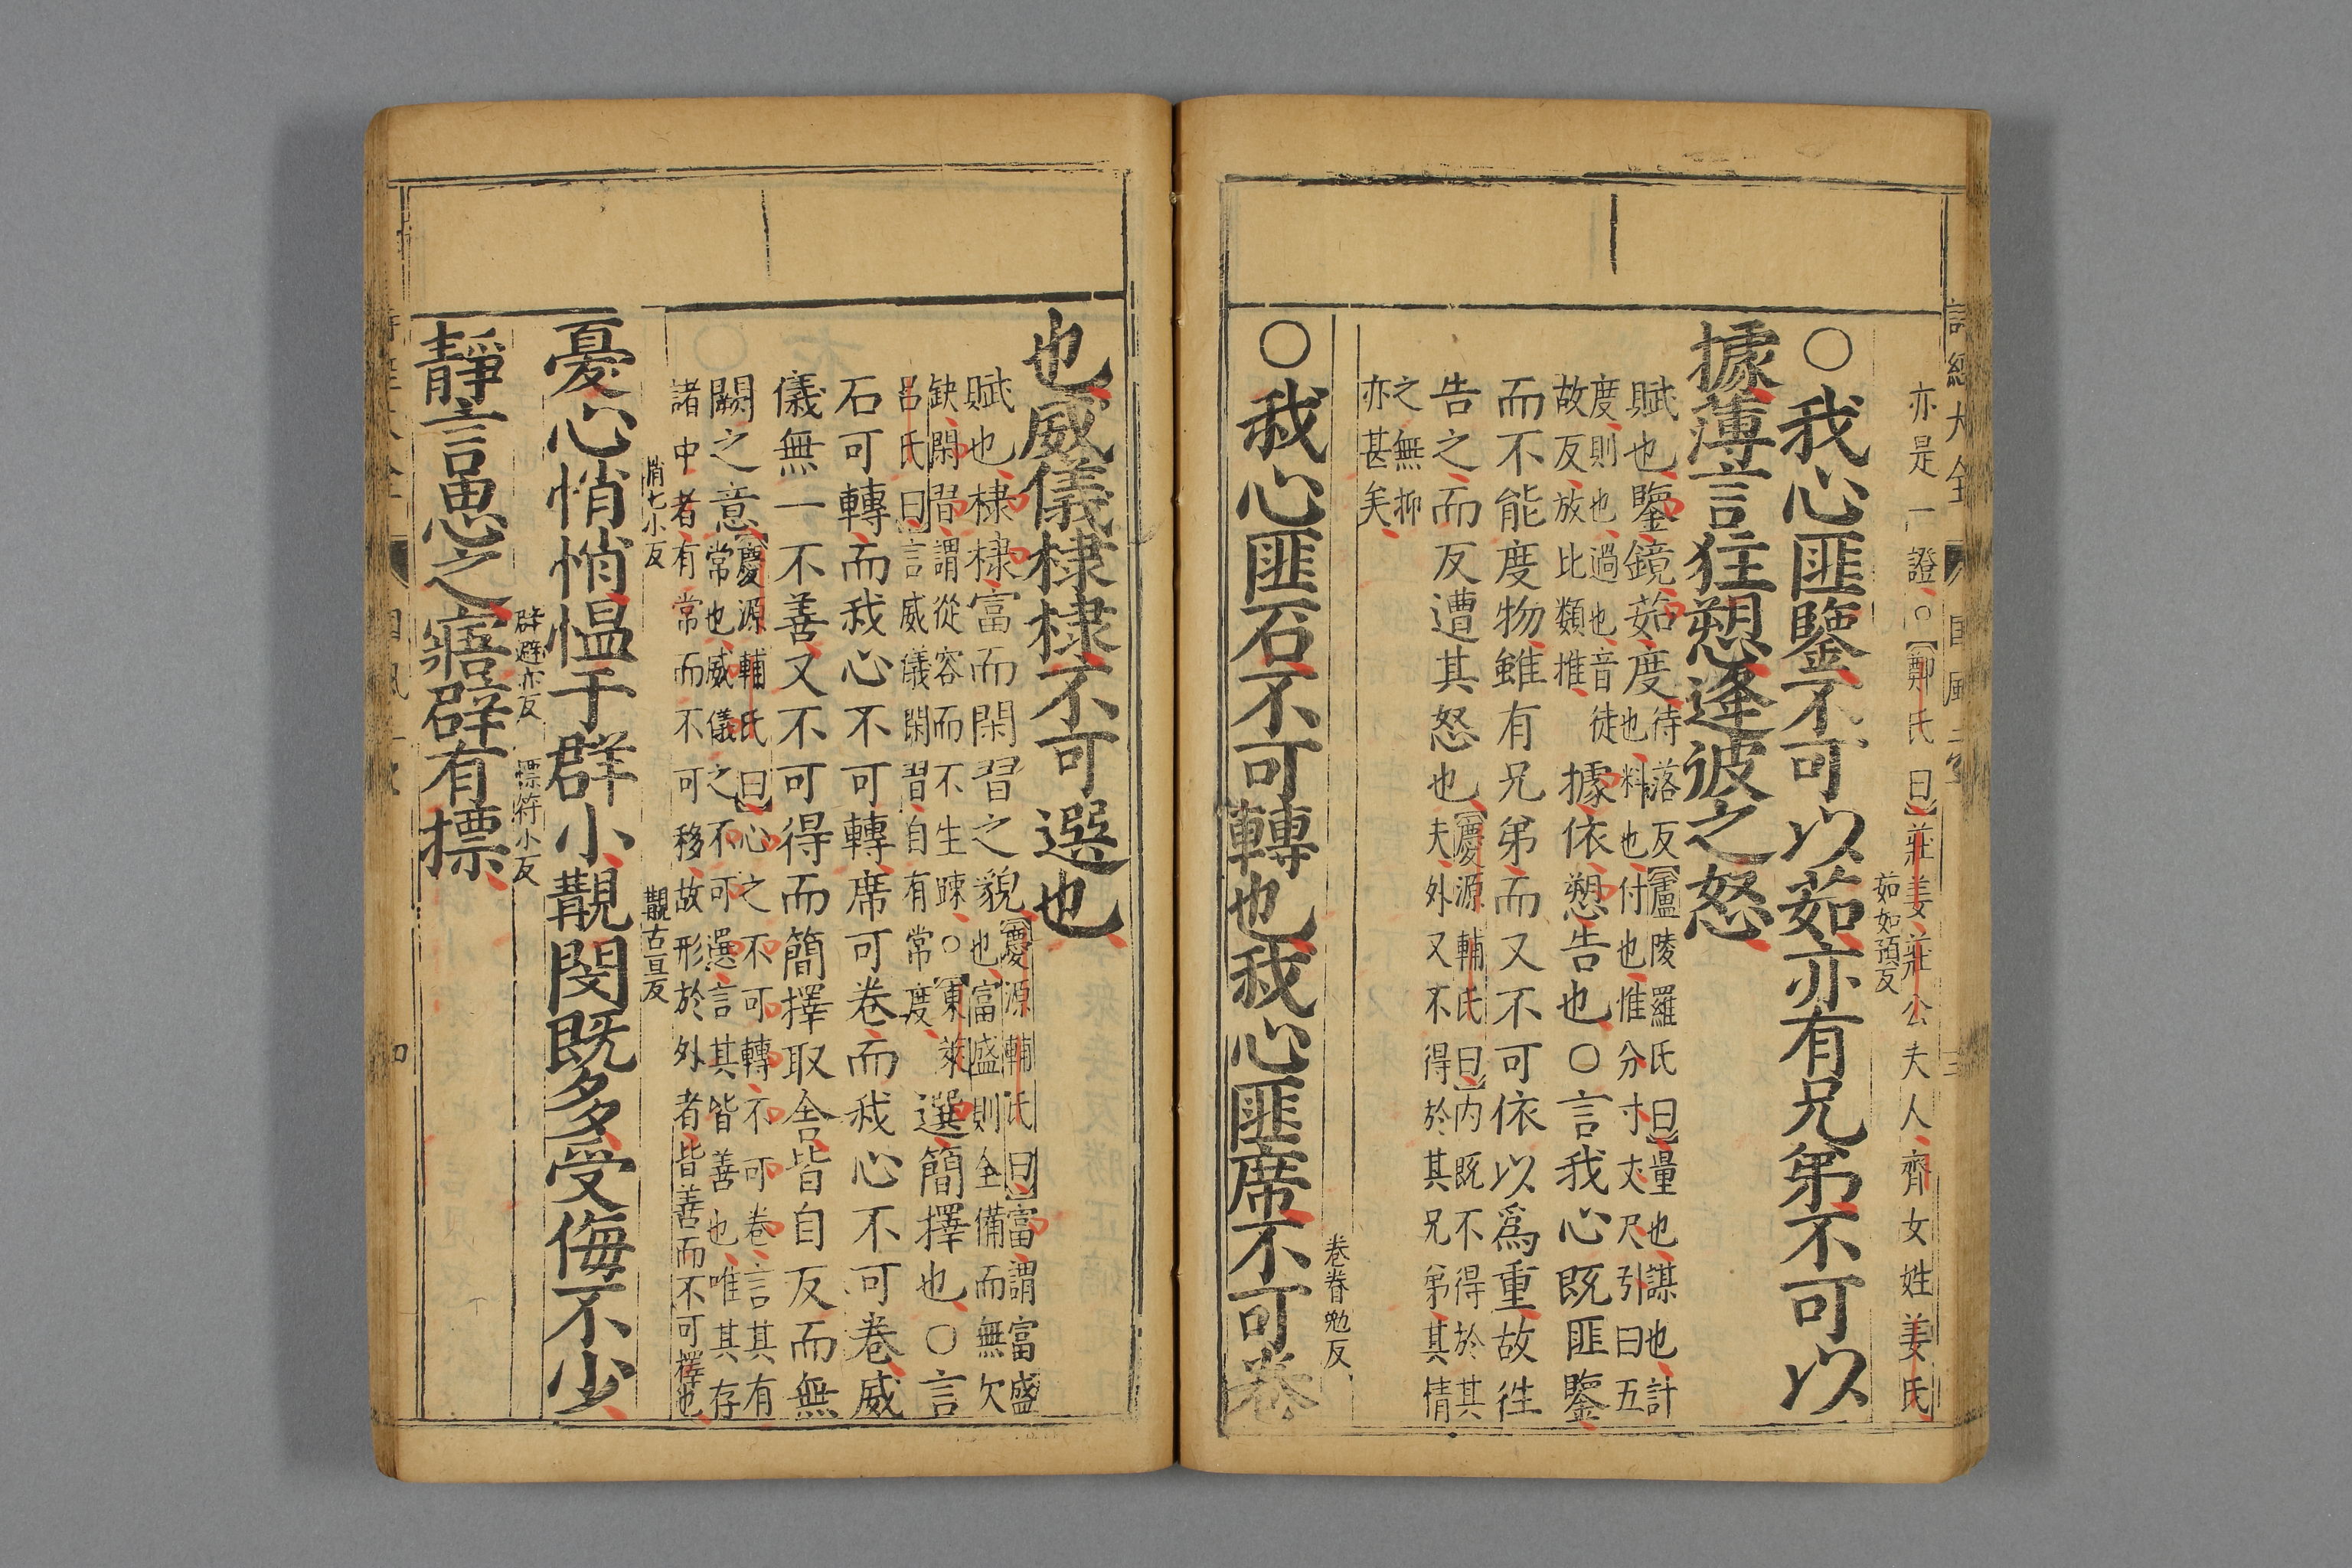 亦是一證○【鄭氏曰】莊姜莊公夫人齊女姓姜氏
○我心匪鑒不可以茹亦有兄弟不可以
茹如預反
據薄言往愬逢彼之怒
賦也鑒鏡茹度也
待落反【廬陵羅氏曰】量也謀也計
料也付也惟分寸丈尺引曰五
度則也過也音徒
故反放比類推
據依愬告也○言我心既匪鑒
而不能度物雖有兄弟而又不可依以爲重故往
告之而反遭其怒也
【慶源輔氏曰】内既不得於其
夫外又不得於其兄弟其情
之無抑
亦甚矣
○我心匪石不可轉也我心匪席不可卷
卷眷勉反
也威儀棣棣不可選也
賦也棣棣富而閑習之貌
【慶源輔氏曰】富謂富盛
也富盛則全備而無欠
缺閑習謂從容而不生踈○【東萊
呂氏曰】言威儀閑習自有常度
選簡擇也○言
石可轉而我心不可轉席可卷而我心不可卷威
儀無一不善又不可得而簡擇取舍皆自反而無
闕之意
【慶源輔氏曰】心之不可轉不可卷言其有
常也威儀之不可選言其皆善也唯其存
諸中者有常而不可移故形於外者皆善而不可擇也
憂心悄悄慍于群小覯閔既多受侮不少
悄七小反
覯古豆反
靜言思之寤辟有摽
辟避亦反
摽符小反